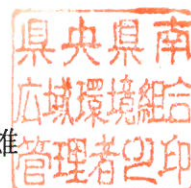 県央県南
広域環境組合
管理者之印